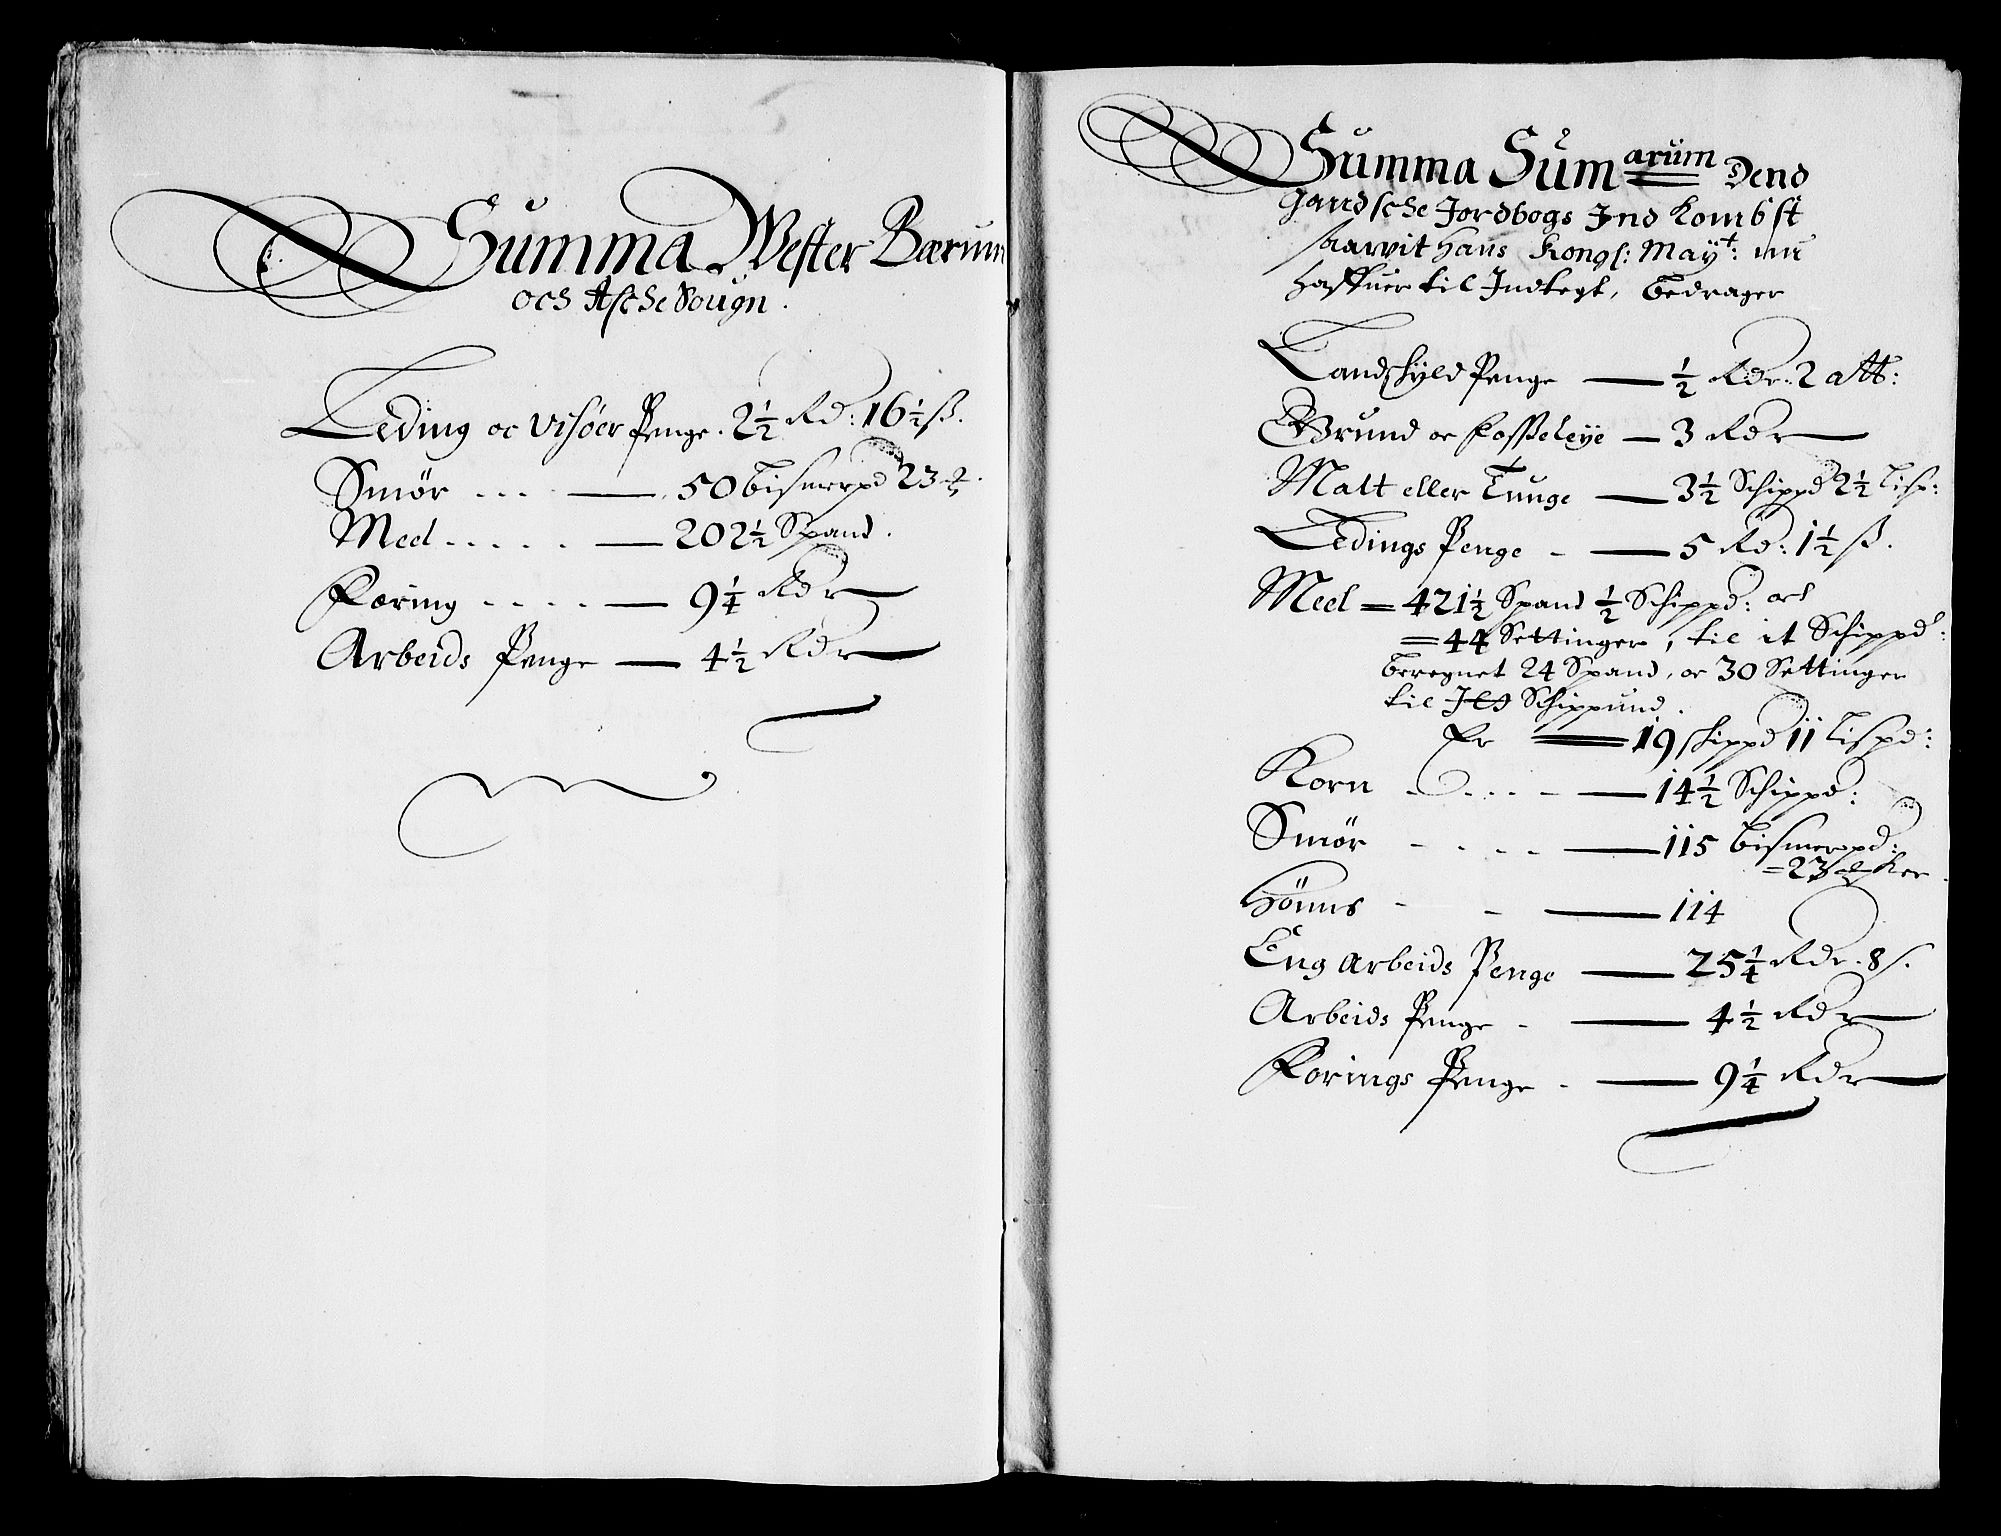 Summa Wester Bærum
och Aschesougn.
Leding oc Visøer Penge. 2½ Rd: 16½ ß.
Smør .... — 50 bismerpd 23 ℔.
Meel ..... — 202½ Spand.
Foering .... — 9¼ Rdr
Arbeids Penge — 4½ Rdr
Summa Sumarum Dend
gandsche Jordbogs Ind Kombst
saavit Hans Kongl: Mayt: nu
haffuer til Indtegt, bedrager
Landskyld Penge — ½ Rdr. 2 alb:
Grund oc Fosseleye — 3 Rdr
Malt eller Tunge — 3½ Schippd 2½ Lisp:
Ledings Penge - — 5 Rd: 1½ ß.
Meel = 421½ Spand ½ Schippd: och
= 44 Settinger, til it Schippd:
beregnet 24 Spand, oc 30 Settinger
til Schippund.
Er = 19 skippd 11 Lispd:
Korn - . . . - — 14½ Schippd:
Smør - - - - — 115 bismerpd:
= 23 ℔
Hönns - - — 114
Eng Arbeids Penge — 25¼ Rdr. 8 s.
Arbeids Penge - — 4½ Rdr
Forings Penge - — 9¼ Rdr